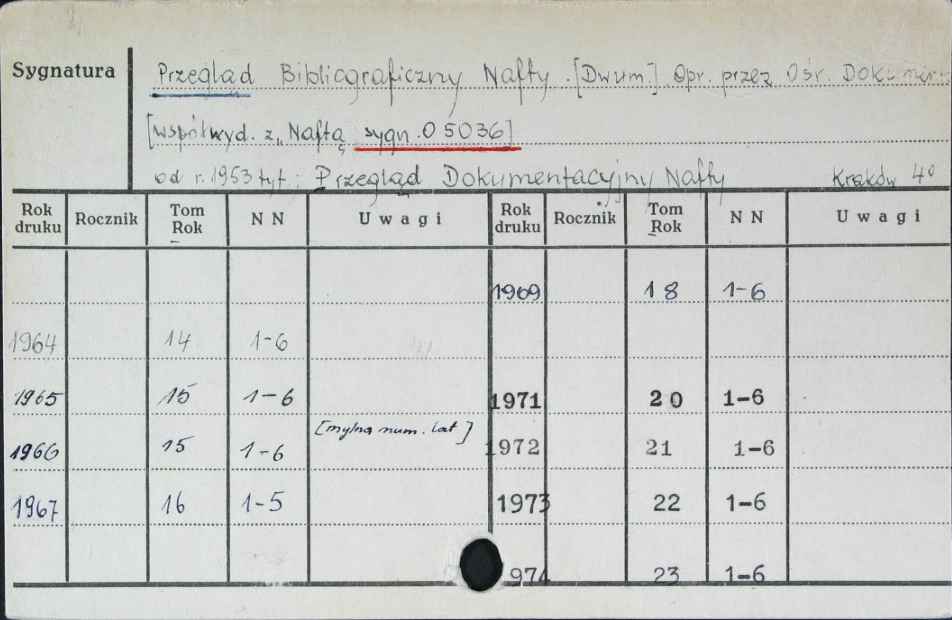 Sygnatura
Przegląd Bibliograficzny Nafty. [Dwum.] Opr. przez Ośr. Dokument
[współwyd. z „Naftą sygn. 05036]
od r. 1953 tyt.: Przegląd Dokumentacyjny Nafty Kraków 4°
Rok druku Rocznik Tom Rok NN Uwagi Rok druku Rocznik Tom Rok NN Uwagi
1969 18 1-6
1964 14 1-6
1965 15 1-6 1971 20 1-6
1966 15 1-6 [mylna num. lat] 1972 21 1-6
1967 16 1-5 1973 22 1-6
974 23 1-6